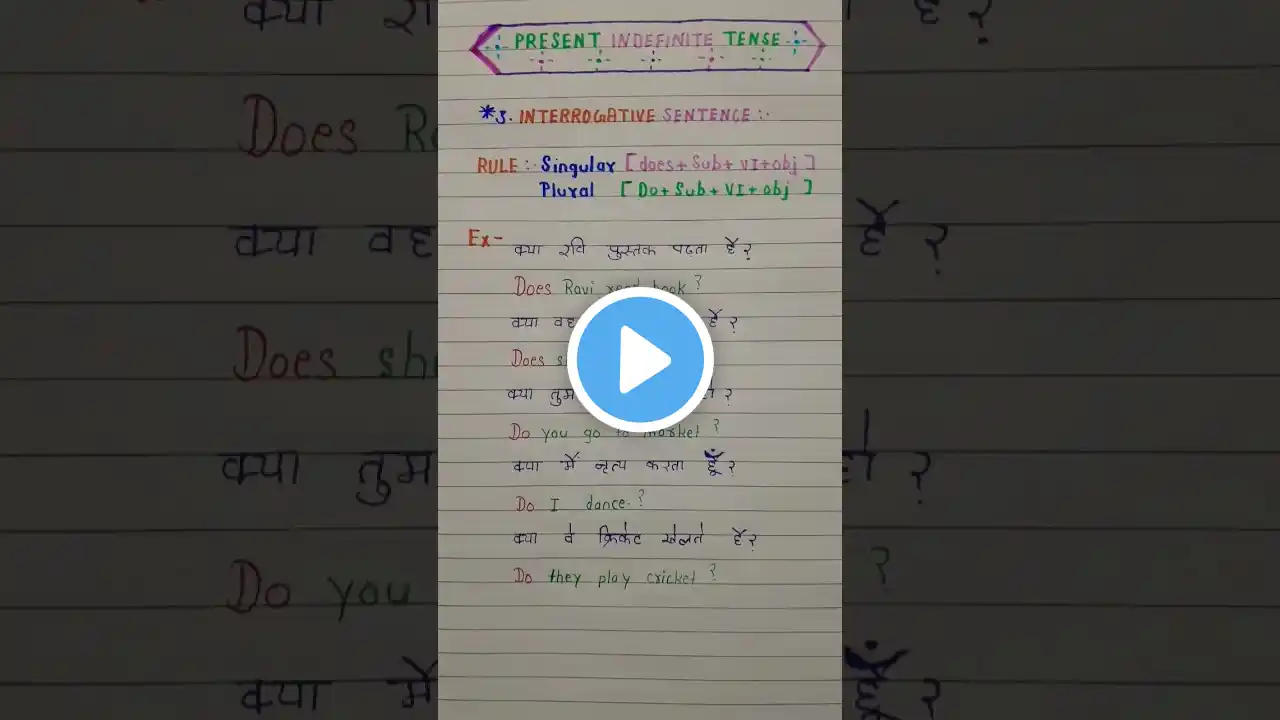 PRESENT INDEFINITE TENSE
*3. INTERROGATIVE SENTENCE :-
RULE :- Singular [does+ Sub+ VI+obj]
Plural [Do+ Sub+ VI+ obj ]
Ex- क्या रवि पुस्तक पढ़ता है?
Does Ravi read book ?
क्या वह है ?
Does
क्या तुम ?
Do you go to market ?
क्या मैं नृत्य करता हूँ ?
Do I dance. ?
क्या वे क्रिकेट खेलते हैं ?
Do they play cricket ?